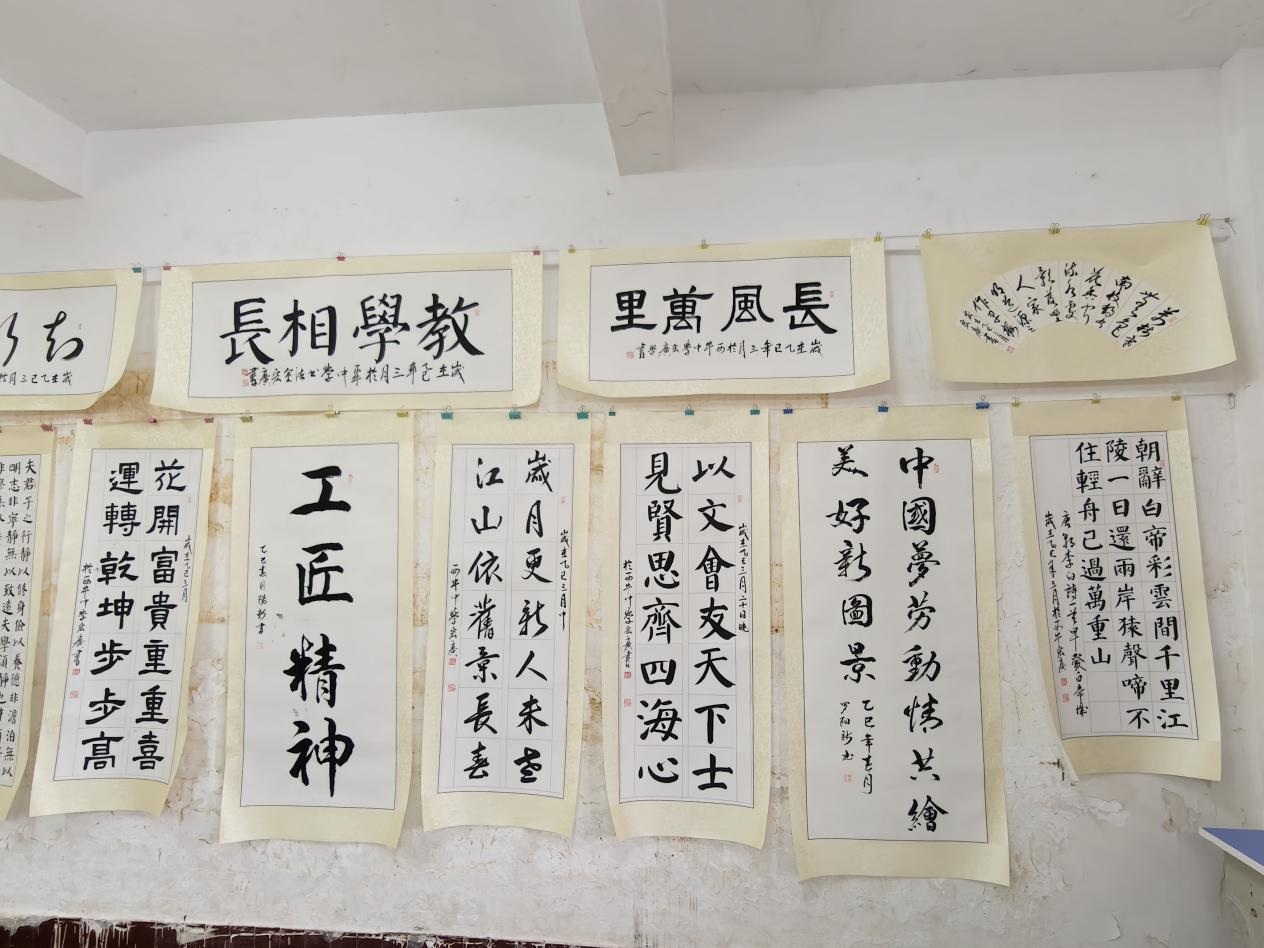 教學相長
歲在乙巳年三月於西牛中學書法室宏廣書
長風萬里
歲在乙巳年三月於西牛中學宏廣學書
歲在乙巳三月於
朝辭白帝彩雲間千里江
陵一日還兩岸猿聲啼不
住輕舟已過萬重山
唐朝李白詩一首早發白帝城
歲在乙巳年三月於西牛宏廣
中國夢勞動情共繪
美好新圖景
乙巳年春月
歲在乙巳三月二十日晚
以文會友天下士
見賢思齊四海心
於西牛中學宏廣書
歲在乙巳三月中
歲月更新人未老
江山依舊景長春
西牛中學宏廣
工匠精神
乙巳春月
歲在乙巳三月
花開富貴重重喜
運轉乾坤步步高
於西牛中學宏廣書
夫君子之行靜以修身儉以養德非澹泊無以
明志非寧靜無以致遠夫學須靜也